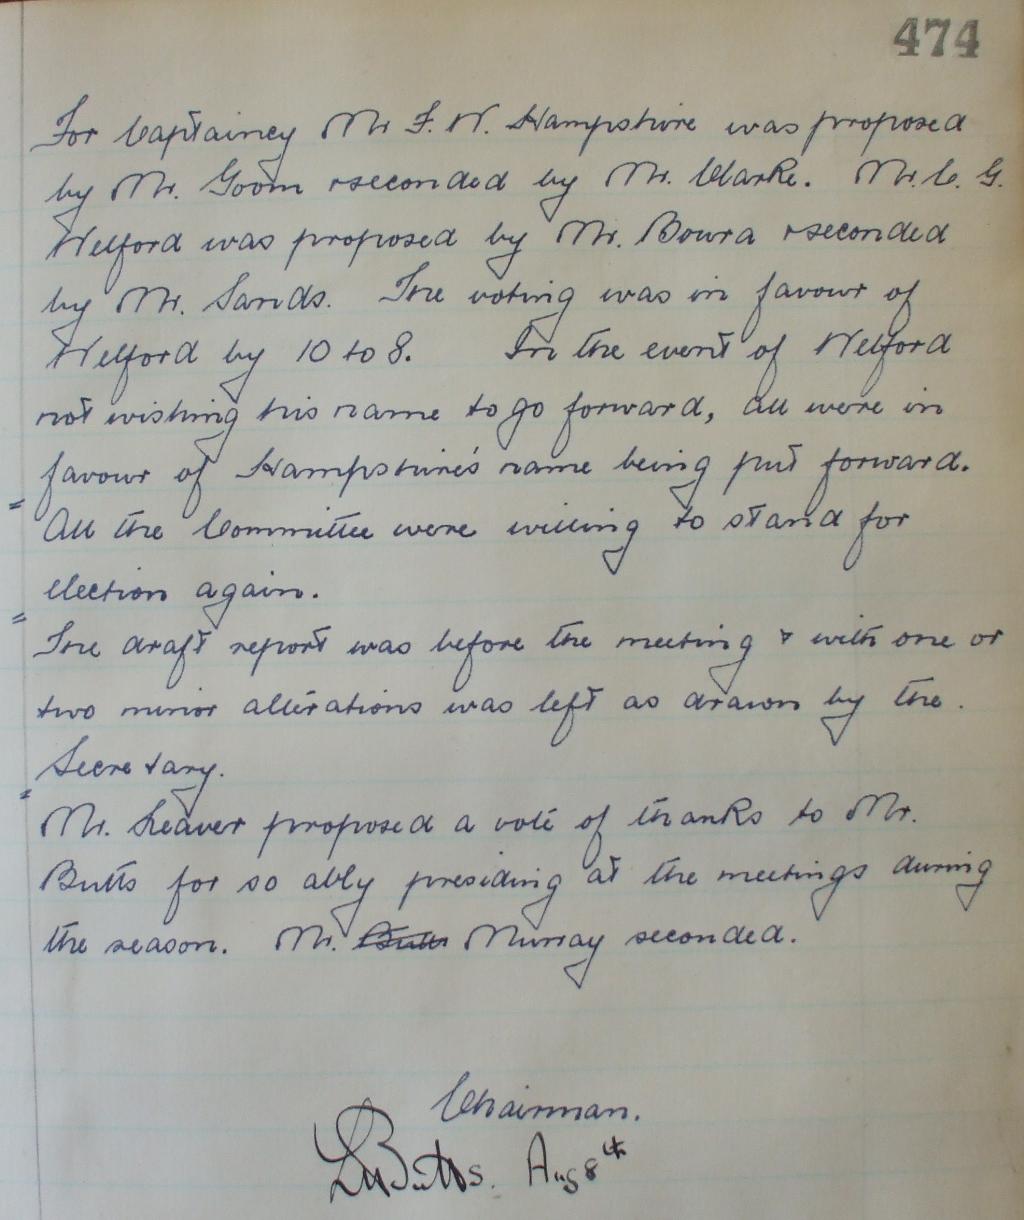 474
For Captaincy Mr F. W. Hampshire was proposed
by Mr. Goom & seconded by Mr. Clarke. Mr. C. G.
Welford was proposed by Mr. Bowra & seconded
by Mr. Sands. The voting was in favour of
Welford by 10 to 8. In the event of Welford
not wishing his name to go forward, all were in
favour of Hampshire's name being put forward.
All the Committee were willing to stand for
election again.
The draft report was before the meeting & with one or
two minor alterations was left as drawn by the.
Secretary.
Mr. Leaver proposed a vote of thanks to Mr.
Butts for so ably presiding at the meetings during
the season. Mr. Butts Murray seconded.
Chairman.
Butts. Aug 8th